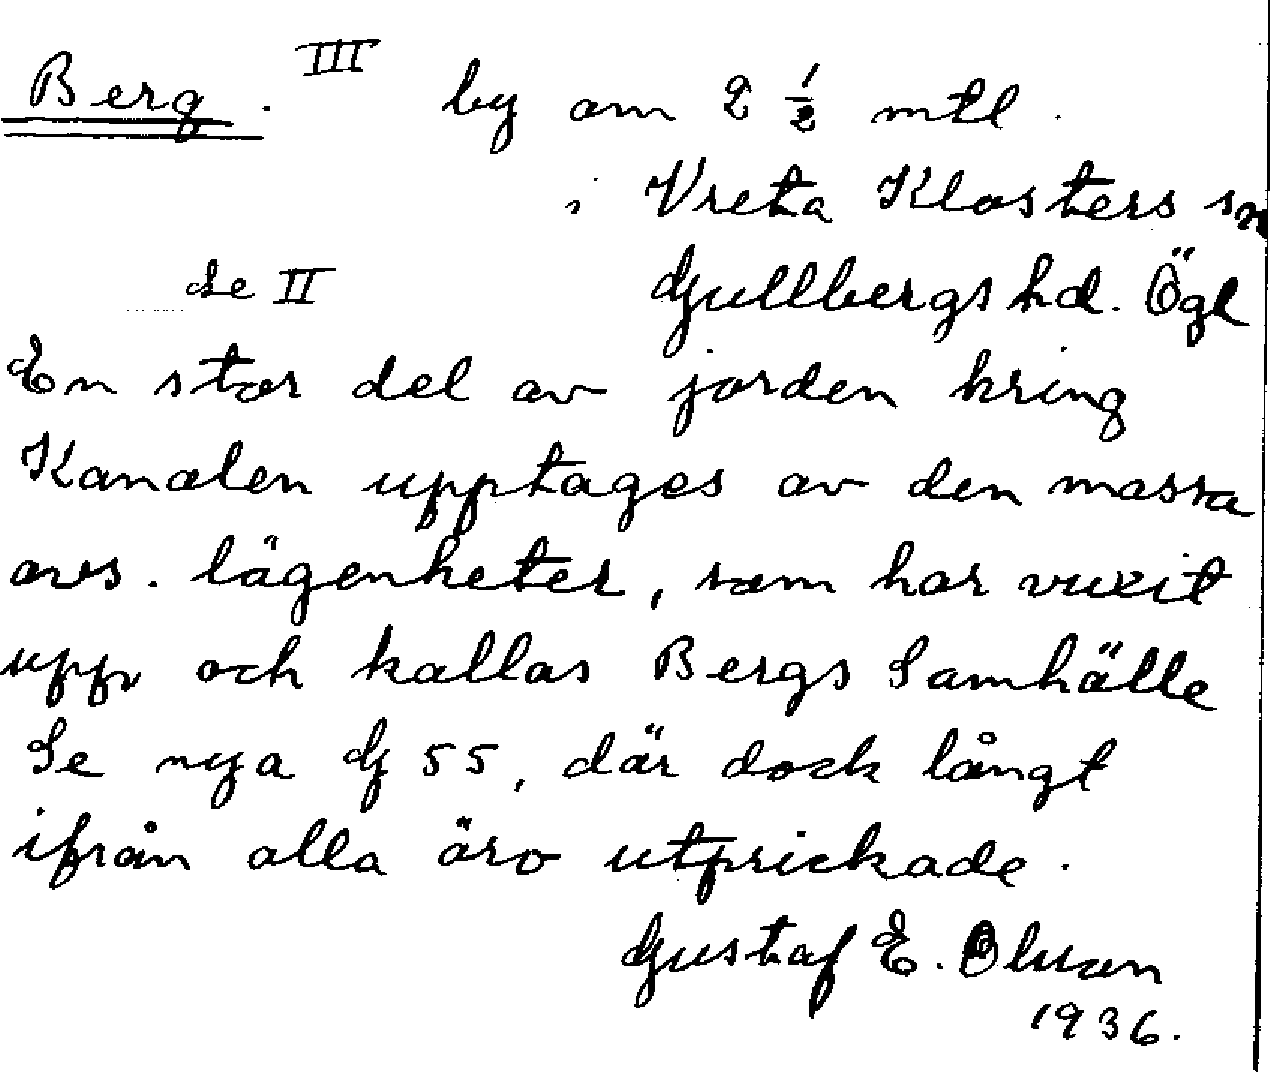 Berg. III by om 2 1/2 mtl.
i Vreta Klosters sn
Se II Gullbergs hd. Ögl
En stor del av jorden kring
Kanalen upptages av den massa
avs. lägenheter, som har vuxit
upp och kallas Bergs Samhälle
Se nya G 55, där dock långt
ifrån alla äro utprickade.
Gustaf E. Olsson
1936.